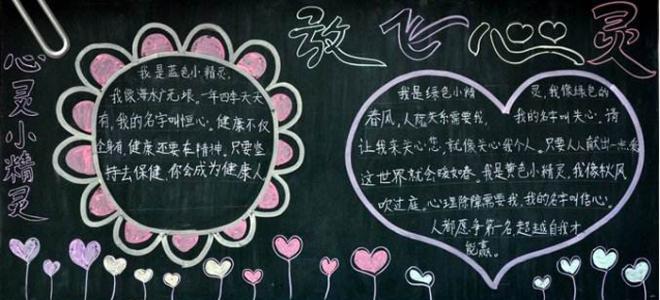 放飞心灵
心灵小精灵
我是蓝色小精灵,
我像海水广无垠。一年四季天天
有,我的名字叫恒心。健康不仅
全身有,健康还要有精神,只要坚
持去保健,你会成为健康人
我是绿色小精灵,我像绿色的
春风,人际关系需要我,我的名字叫关心。请
让我来关心您,就像关心我个人。只要人人献出一点爱
这世界就会暖如春。我是黄色小精灵,我像秋风
吹过庭。心理障碍需要我,我的名字叫信心。
人都愿争第一名,超越自我才
能赢。